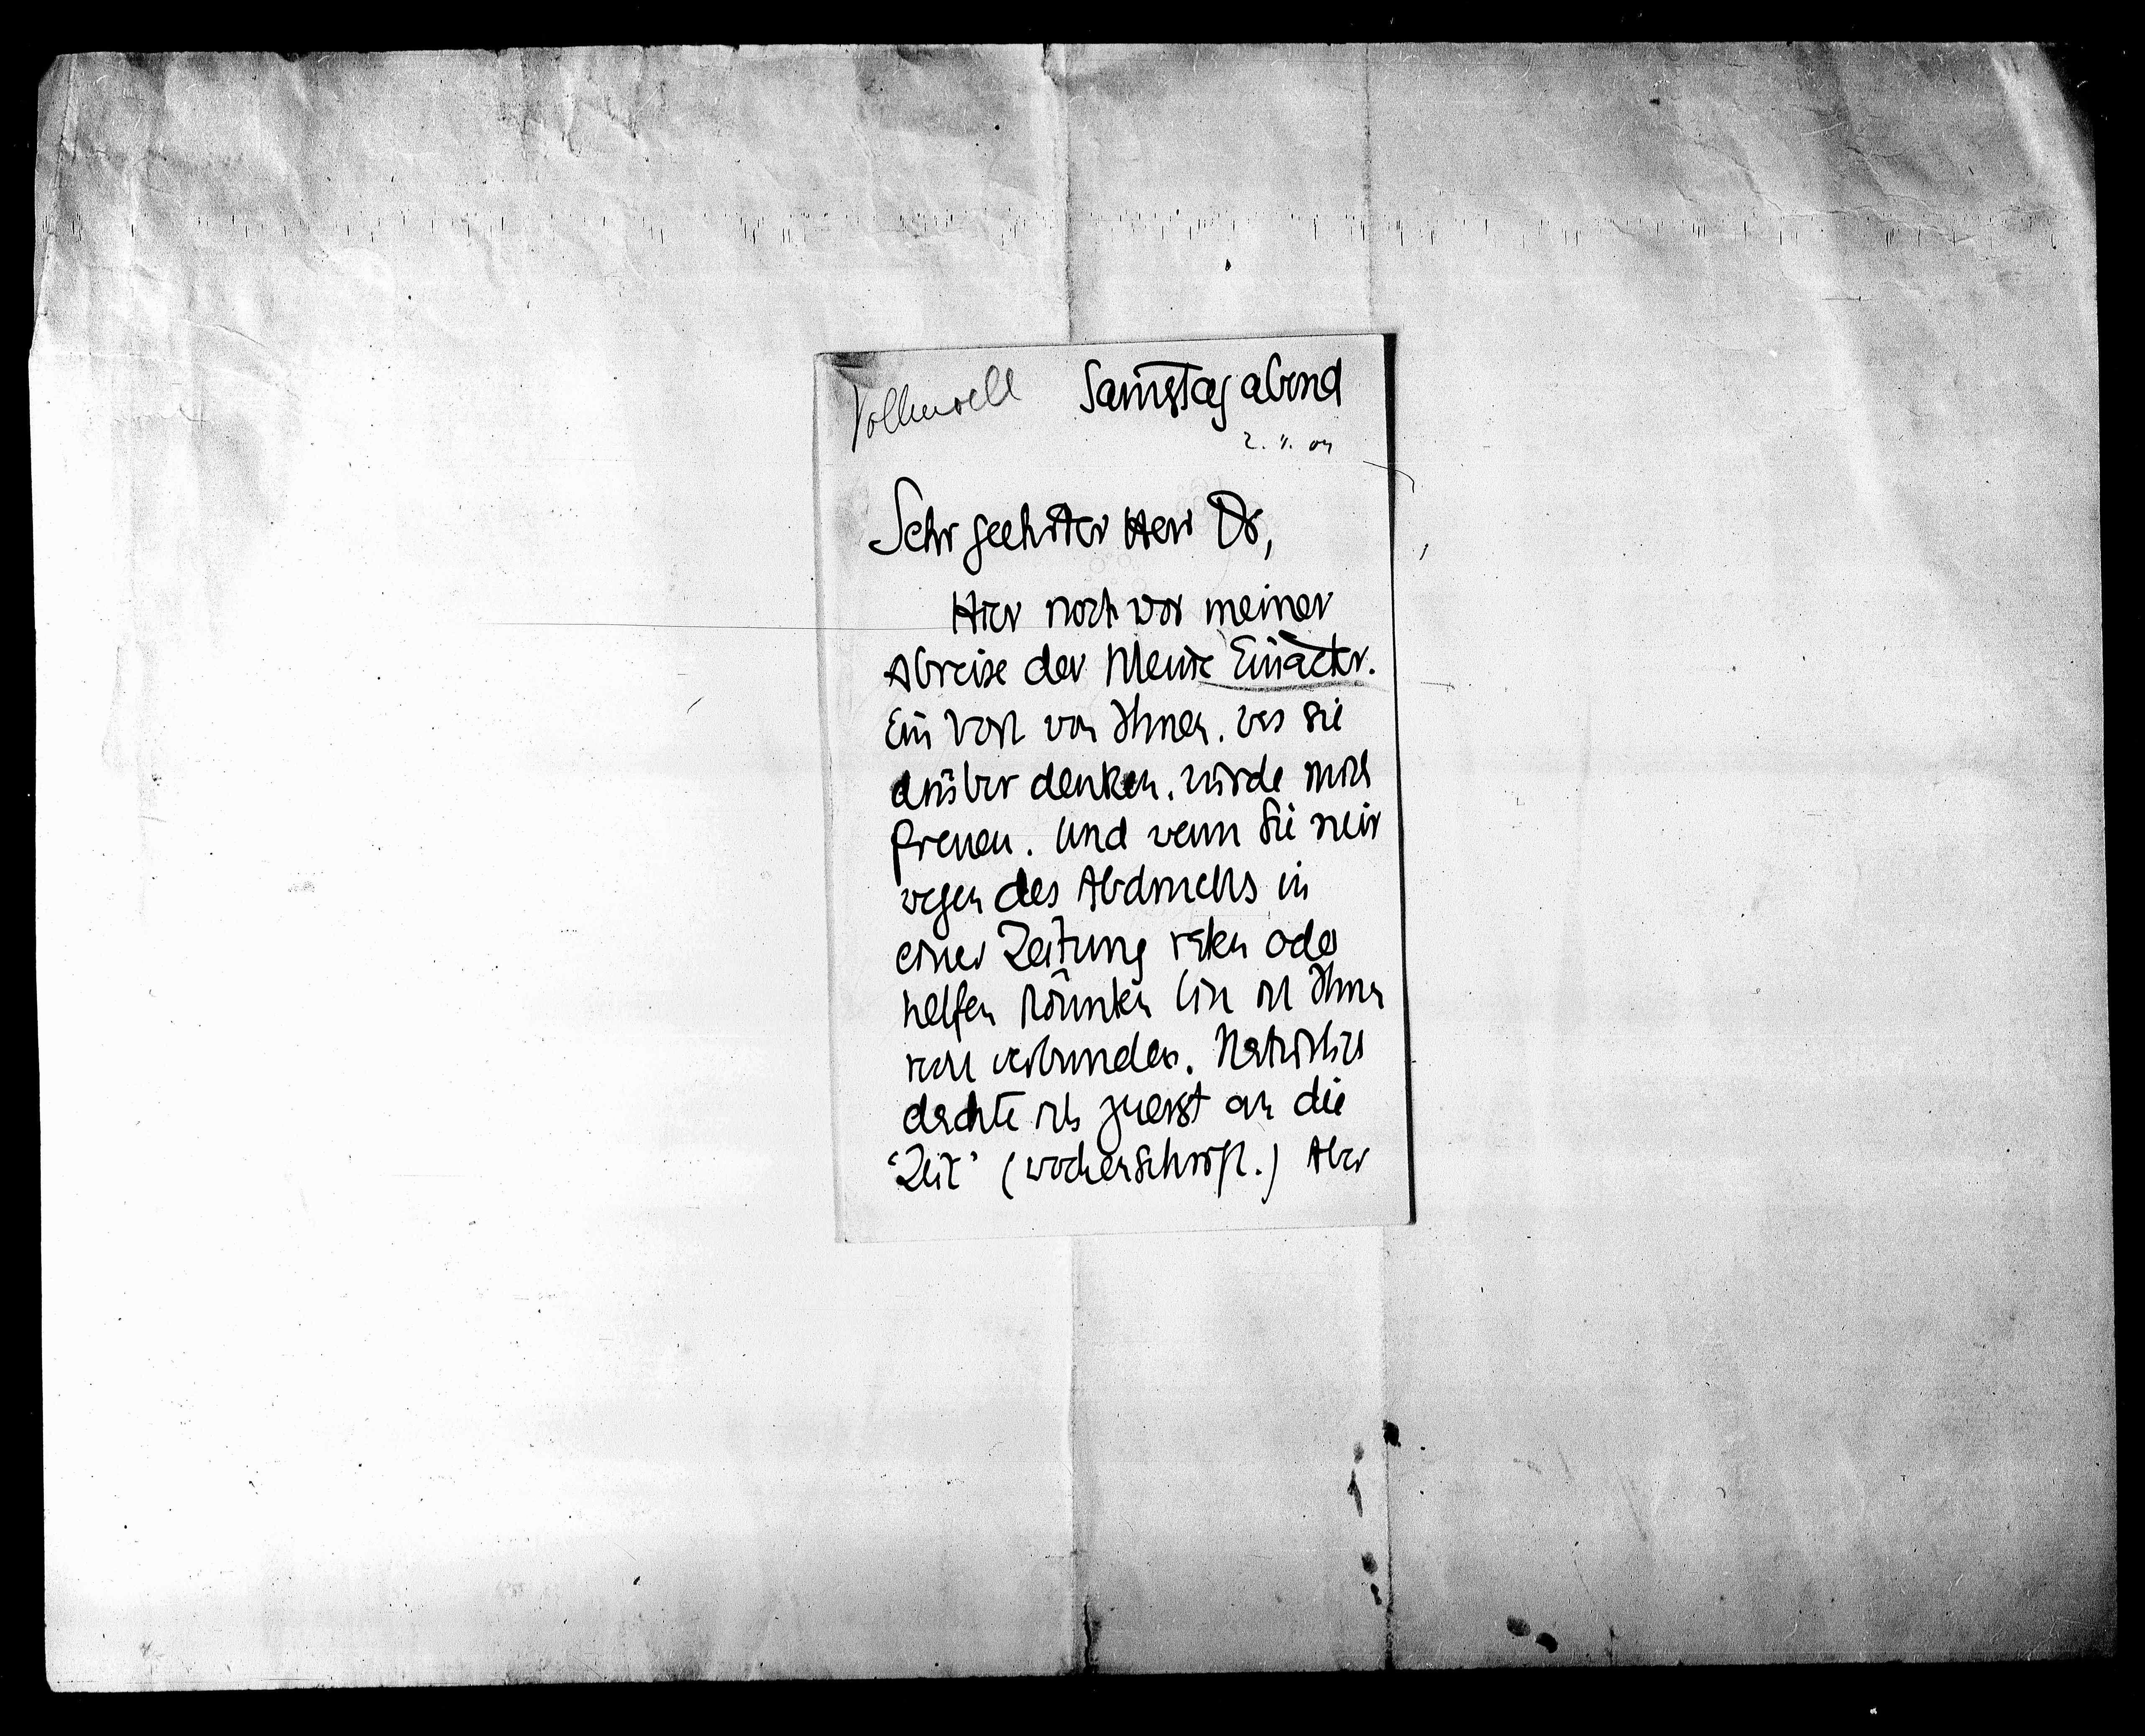 Vollmoeller Samstag abend
2. 4. 04
Sehr geehrter Herr Dr,
Hier noch vor meiner
Abreise der kleine Einacter.
Ein Wort von Ihnen, was Sie
drüber denken, würde mich
freuen. Und wenn Sie mir
wegen des Abdrucks in
einer Zeitung raten oder
helfen könnten bin ich Ihnen
sehr verbunden. Natürlich
dachte ich zuerst an die
‘Zeit’ (Wochenschrift.) Aber